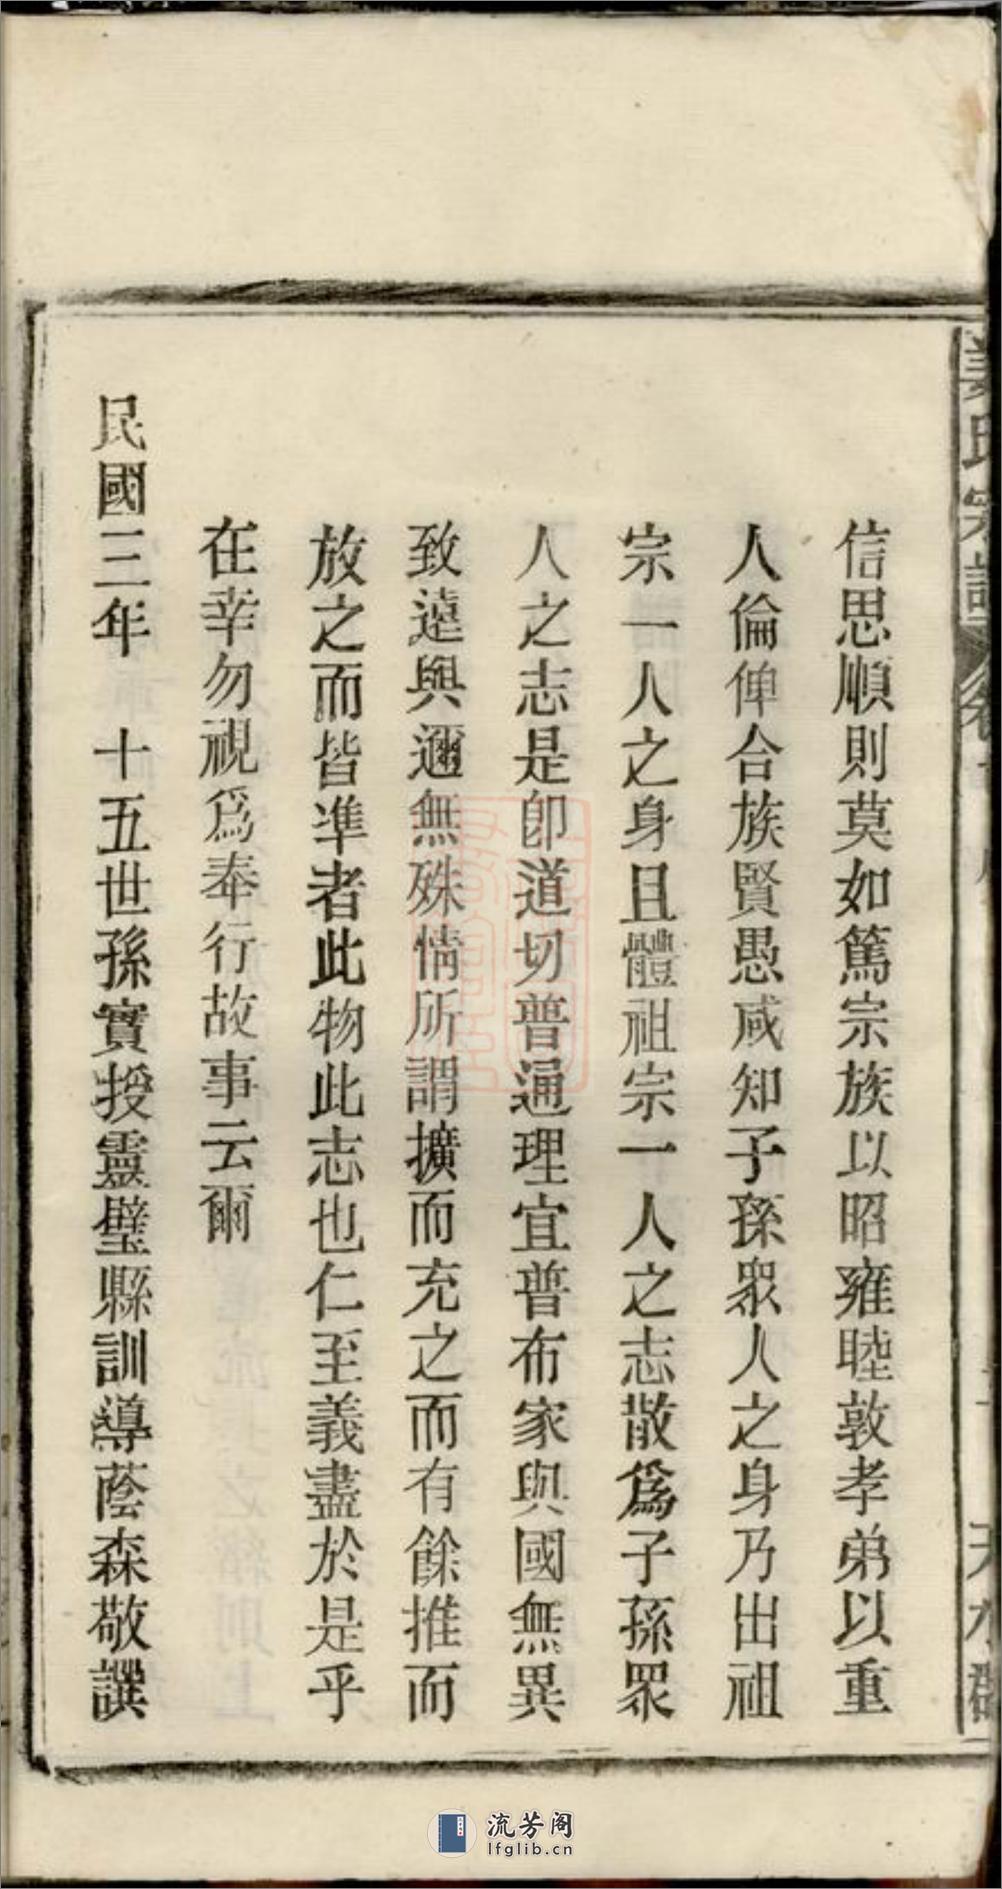 信思順則莫如篤宗族以昭雍睦敦孝弟以重
人倫俾合族賢愚咸知子孫衆人之身乃出祖
宗一人之身且體祖宗一人之志散爲子孫眾
人之志是卽道切普通理宜普布家與國無異
致遠與邇無殊情所謂擴而充之而有餘推而
放之而皆準者此物此志也仁至義盡於是乎
在幸勿視爲奉行故事云爾
民國三年 十五世孫實授靈璧縣訓導蔭森敬譔
流芳阁
lfglib.cn